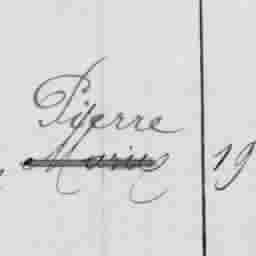 Pierre
Marie 19